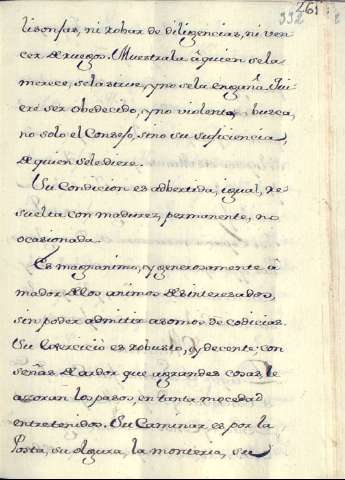 261
332
lisonjas, ni robar de diligencias, ni ven-
cer de ruegos. Muestrala à quien se la
merece, se la sirve, y no se la engaña. Qui-
ere ser obedecido, y no violento, busca,
no solo el Consejo, sino su suficiencia,
de quien se le diere.
Su Condicion es adbertida, igual, re-
suelta con madurez, permanente, no
ocasionada.
Es magnanimo, y generosamente â
mador de los animos desinteresados,
sin poder admitir asomos de codicias.
Su exercicio es robusto, y decente con
señas de ardor que à grandes cosas le
azoran los pasos, en tanta mocedad
entretenidos. Su Caminar es por la
Posta, su olgura, la monteria, su